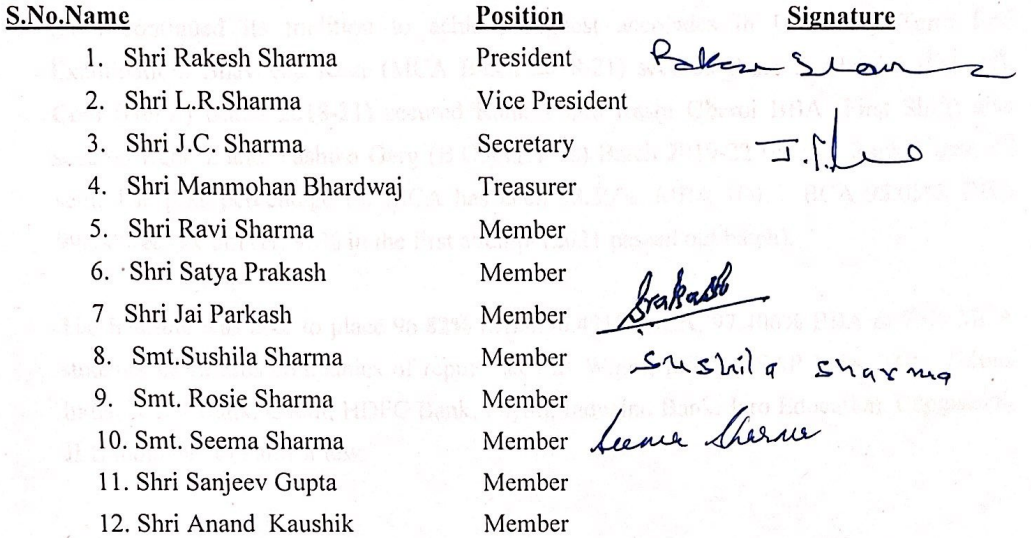 S.No.Name Position Signature
1. Shri Rakesh Sharma President Rakesh Sharma
2. Shri L.R.Sharma Vice President
3. Shri J.C. Sharma Secretary
4. Shri Manmohan Bhardwaj Treasurer
5. Shri Ravi Sharma Member
6. Shri Satya Prakash Member
7 Shri Jai Parkash Member Prakash
8. Smt.Sushila Sharma Member Sushila Sharma
9. Smt. Rosie Sharma Member
10. Smt. Seema Sharma Member Seema Sharma
11. Shri Sanjeev Gupta Member
12. Shri Anand Kaushik Member